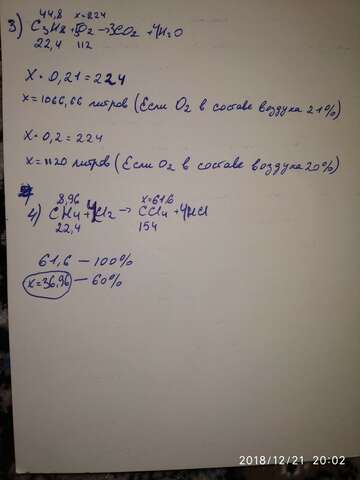 44,8 x=224
3) C3H8+5O2→3CO2 + 4H2O
22,4 112
X · 0,21 = 224
x=1066,66 литров (Если O2 в составе воздуха 21%)
X · 0,2 = 224
x=1120 литров (Если O2 в составе воздуха 20%)
8,96 x=61,6
4) CH4+4Cl2 → CCl4+4HCl
22,4 154
61,6 — 100%
x=36,96 — 60%
2018/12/21 20:02